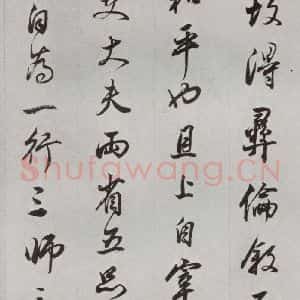 故得彝倫敘
和平也且上自宰
大夫兩省五品
自為一行三師三
Shufawang.CN